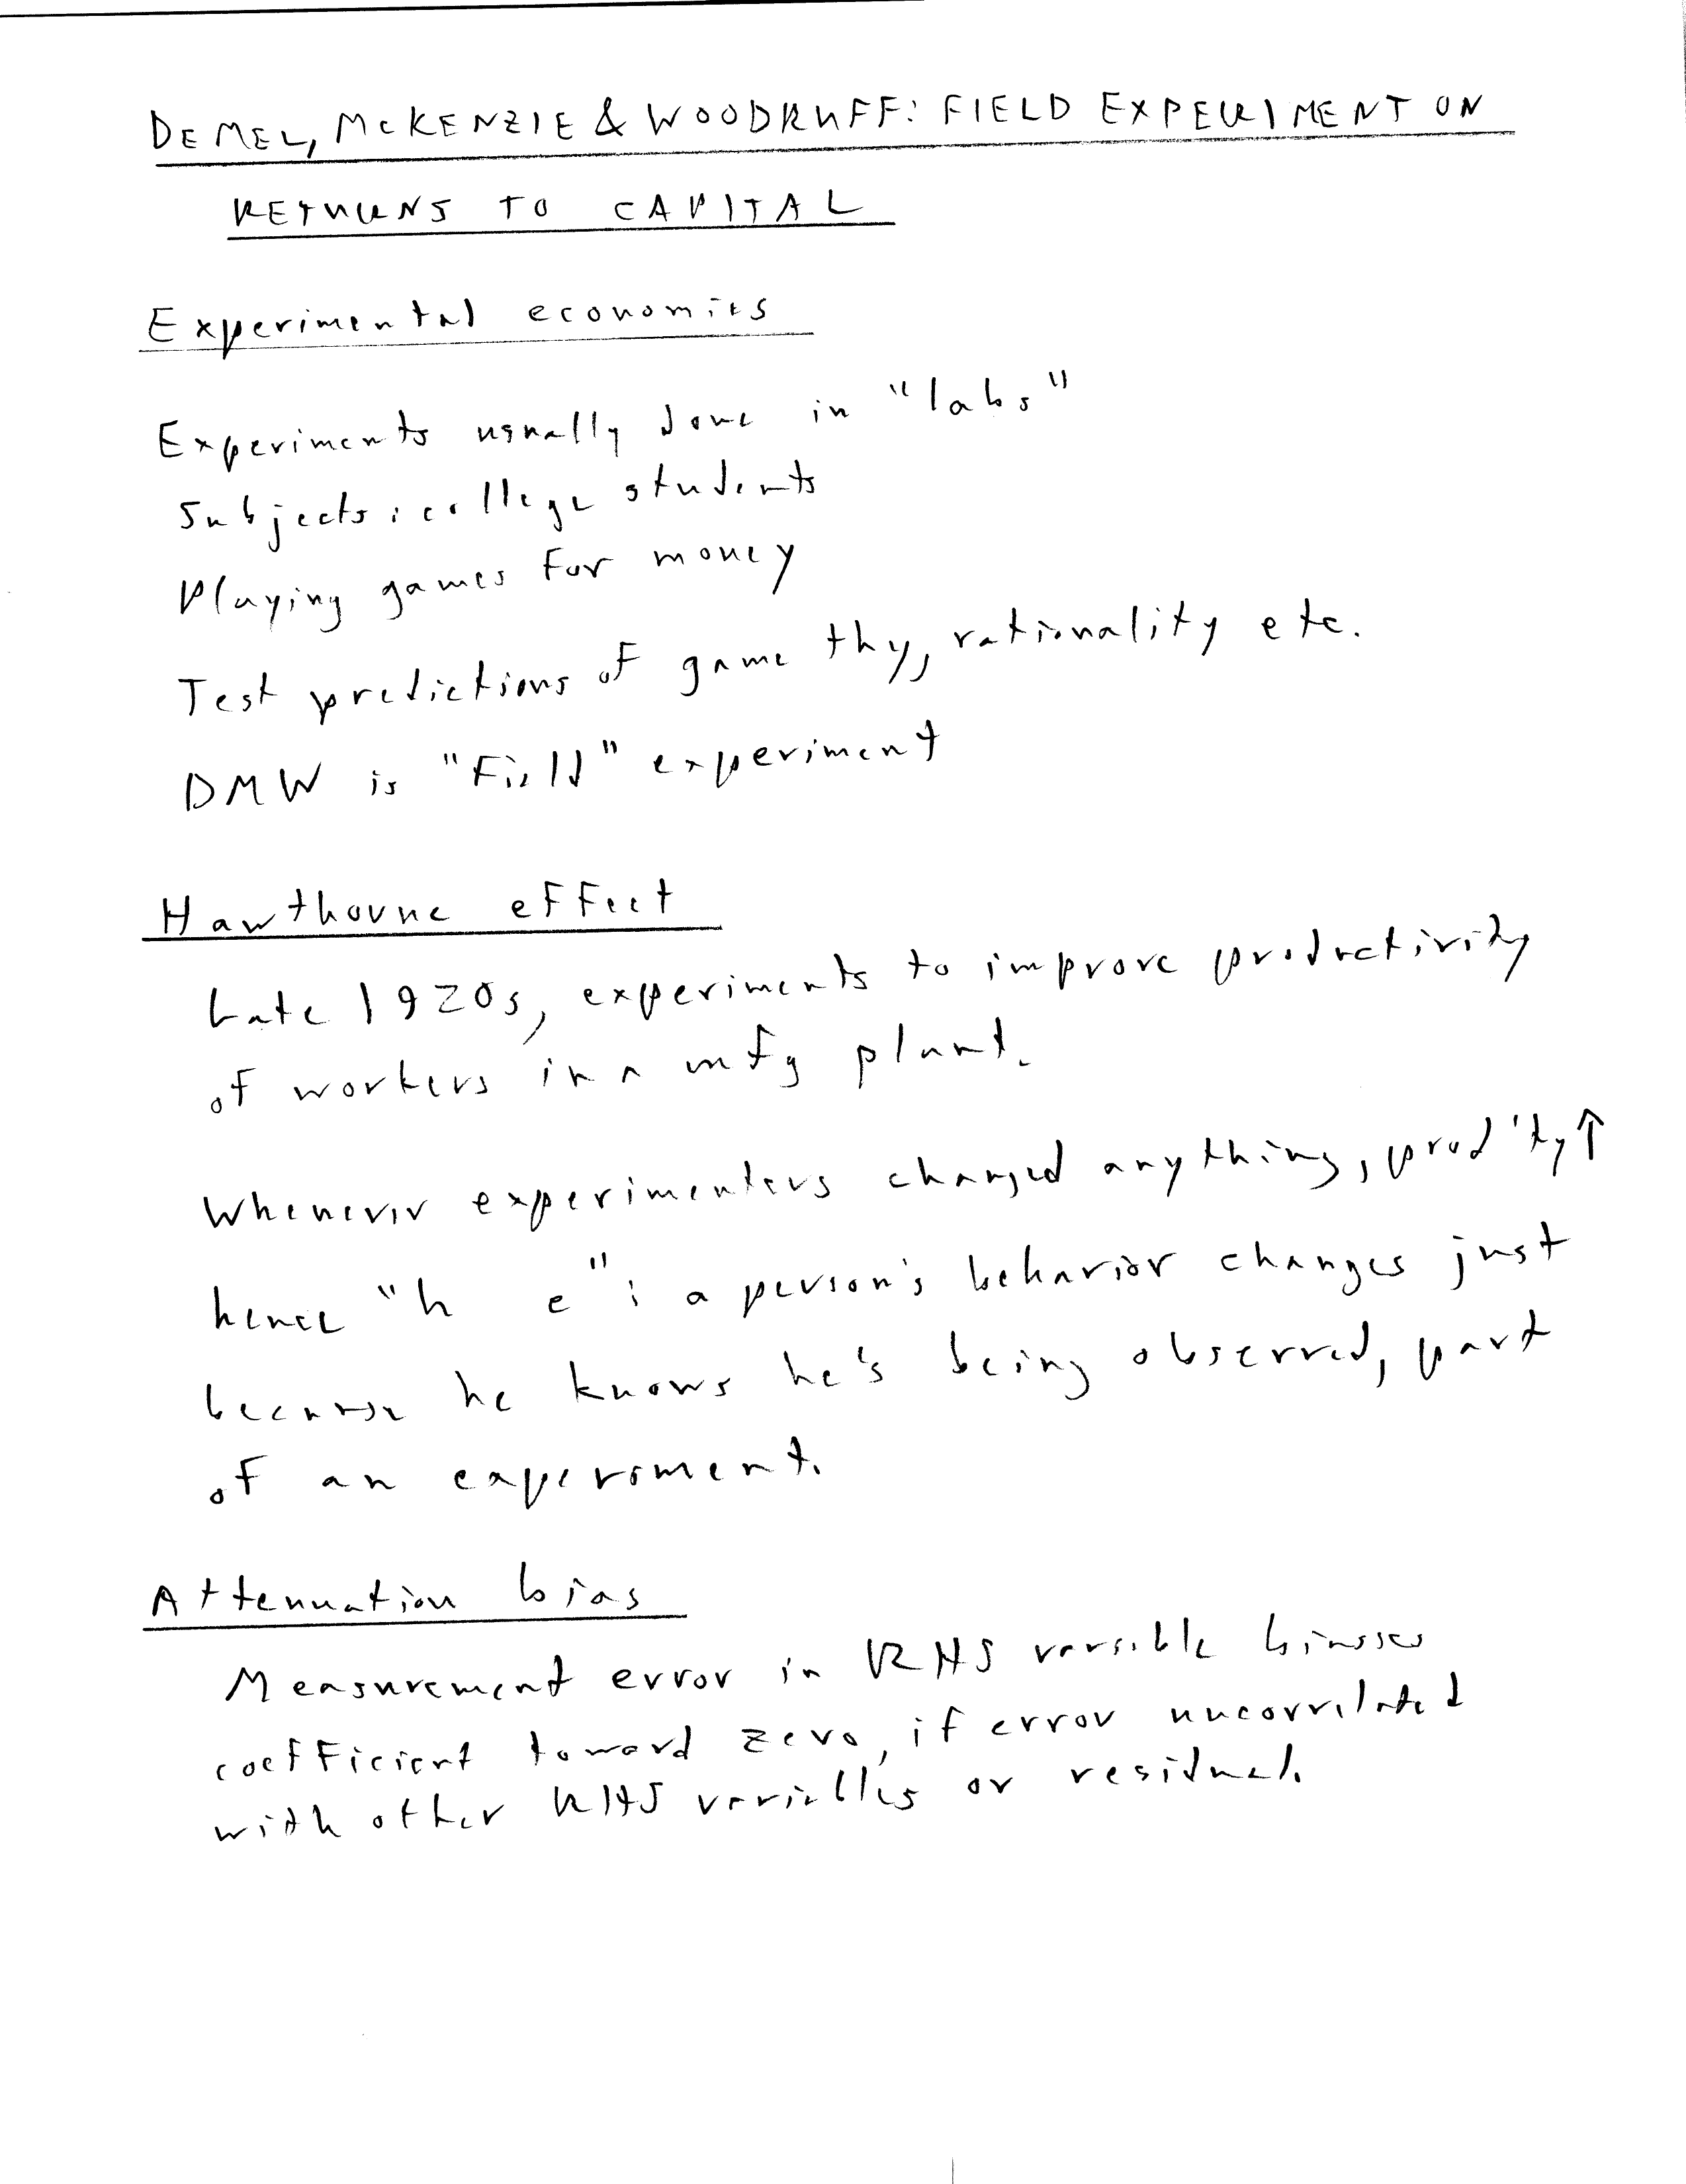 DE MEL, MCKENZIE & WOODRUFF: FIELD EXPERIMENT ON
RETURNS TO CAPITAL
Experimental economics
Experiments usually done in "labs"
Subjects: college students
Playing games for money
Test predictions of game thy, rationality etc.
DMW is "Field" experiment
Hawthorne effect
Late 1920s, experiments to improve productivity
of workers in a mfg plant.
Whenever experimenters changed anything, prod'ty ↑
hence "h e": a person's behavior changes just
because he knows he's being observed, part
of an experiment.
Attenuation bias
Measurement error in RHS variable biasses
coefficient toward zero, if error uncorrelated
with other RHS variables or residual.